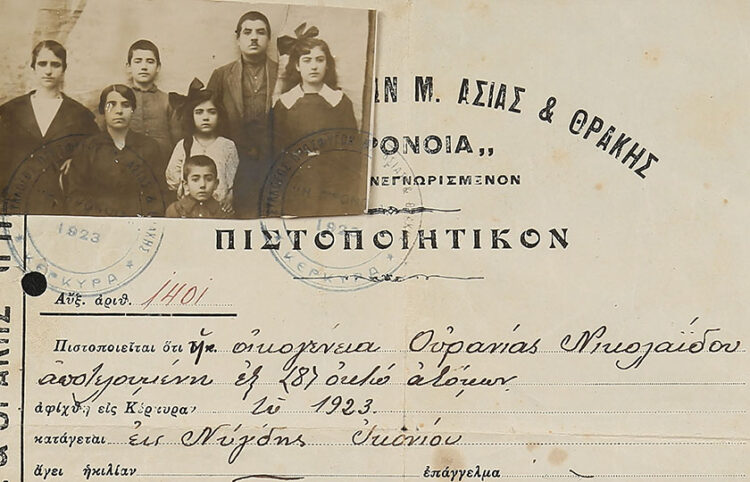 ΩΝ Μ. ΑΣΙΑΣ & ΘΡΑΚΗΣ
ΡΟΝΟΙΑ„
ΝΕΓΝΩΡΙΣΜΕΝΟΝ
ΠΙΣΤΟΠΟΙΗΤΙΚΟΝ
1923
ΚΕΡΚΥΡΑ
1923
ΚΕΡΚΥΡΑ
Αὔξ. ἀριθ. 1401
Πιστοποιεῖται ὅτι ἡ κ. οἰκογένεια Οὐρανίας Νικολαΐδου
ἀποτελουμένη ἐξ (8) ὀκτὼ ἀτόμων
ἀφίχθη εἰς Κέρκυραν τῷ 1923.
κατάγεται ἐκ Νύγδης Ἰκονίου
ἄγει ἡλικίαν ἐπάγγελμα